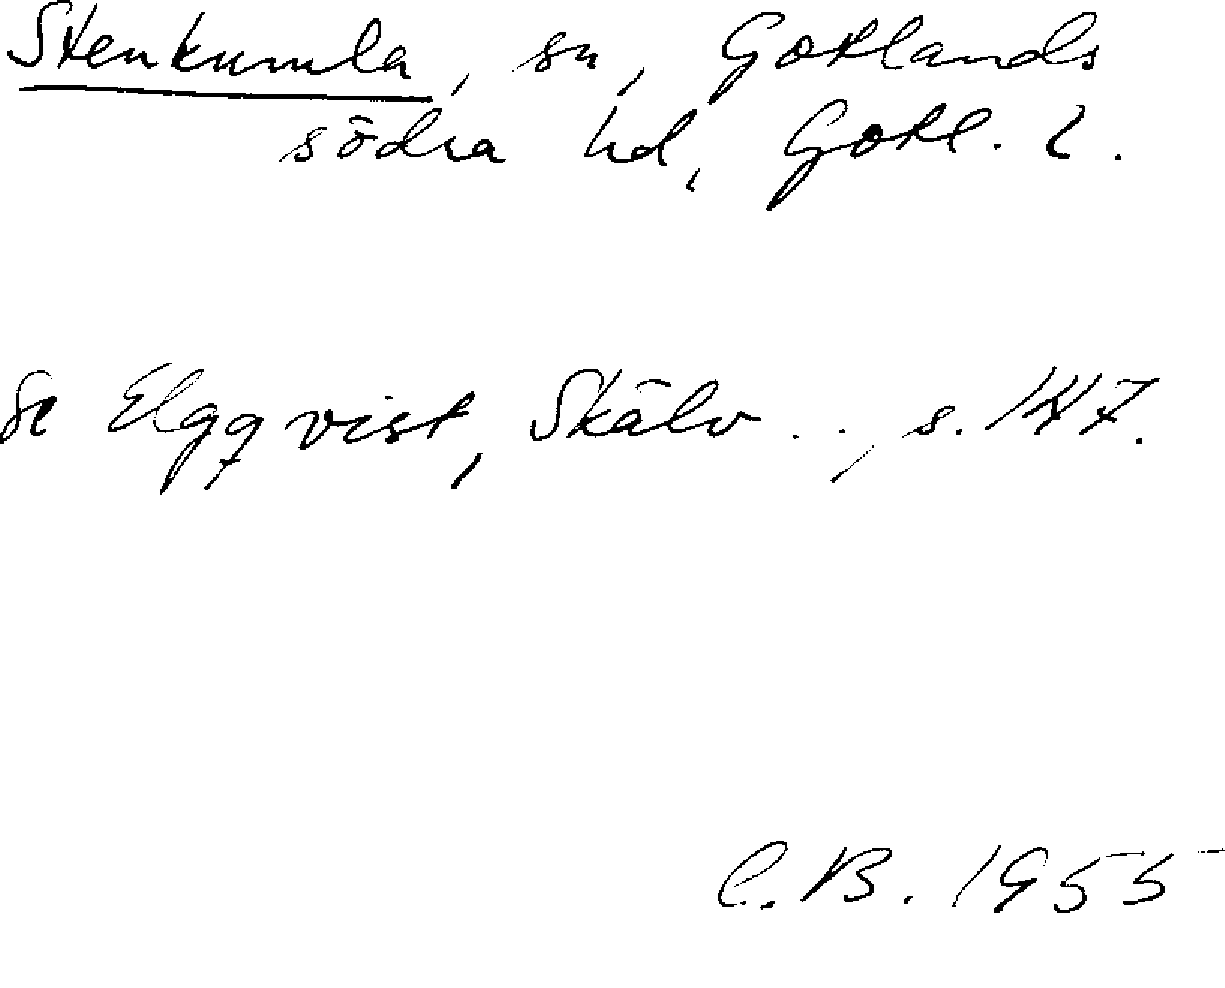 Stenkumla, sn, Gotlands
södra hd, Gotl. l.
Se Elgqvist, Skälv . . , s. 147.
C.B. 1955